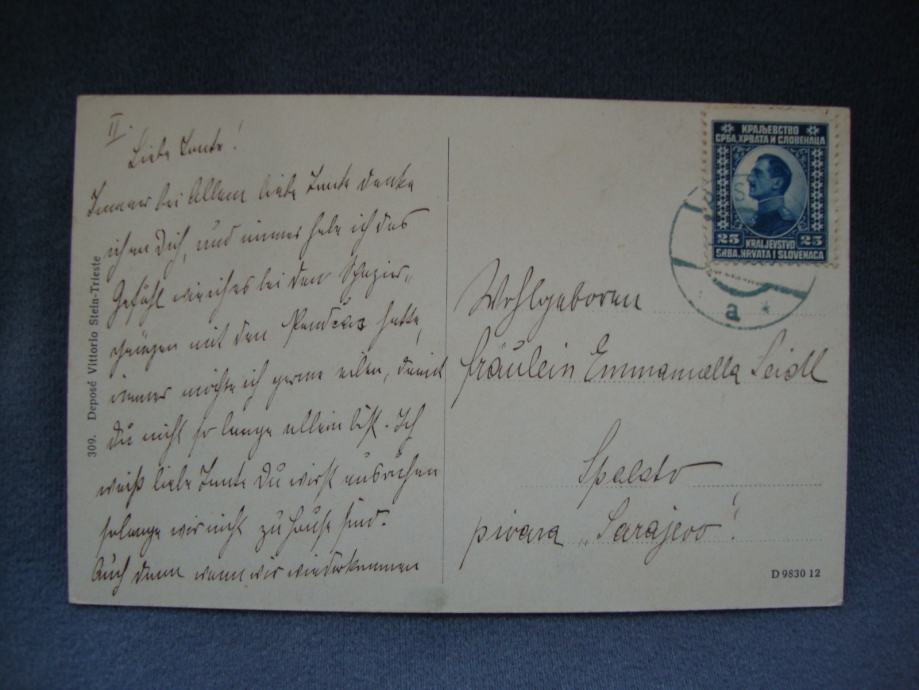 II.
Liebe Tante!
Immer bei Allem liebe Tante denke
ich an Dich, und immer habe ich das
Gefühl wie ich es bei den Spazier-
gängen mit den hatte,
immer möchte ich gerne eilen, damit
Du nicht so lange allein bist. Ich
weiß liebe Tante Du wirst ausruhen
solange wir nicht zu Hause sind.
Auch dann wenn wir wiederkommen
309. Deposé Vittorio Stein-Trieste
КРАЉЕВСТВО
СРБА, ХРВАТА И СЛОВЕНАЦА
25 25
KRALJEVSTVO
SRBA, HRVATA I SLOVENACA
a *
Wohlgeboren
Fräulein Emmanuella Seidl
Spalato
pivara „Sarajevo"!
D 9830 12